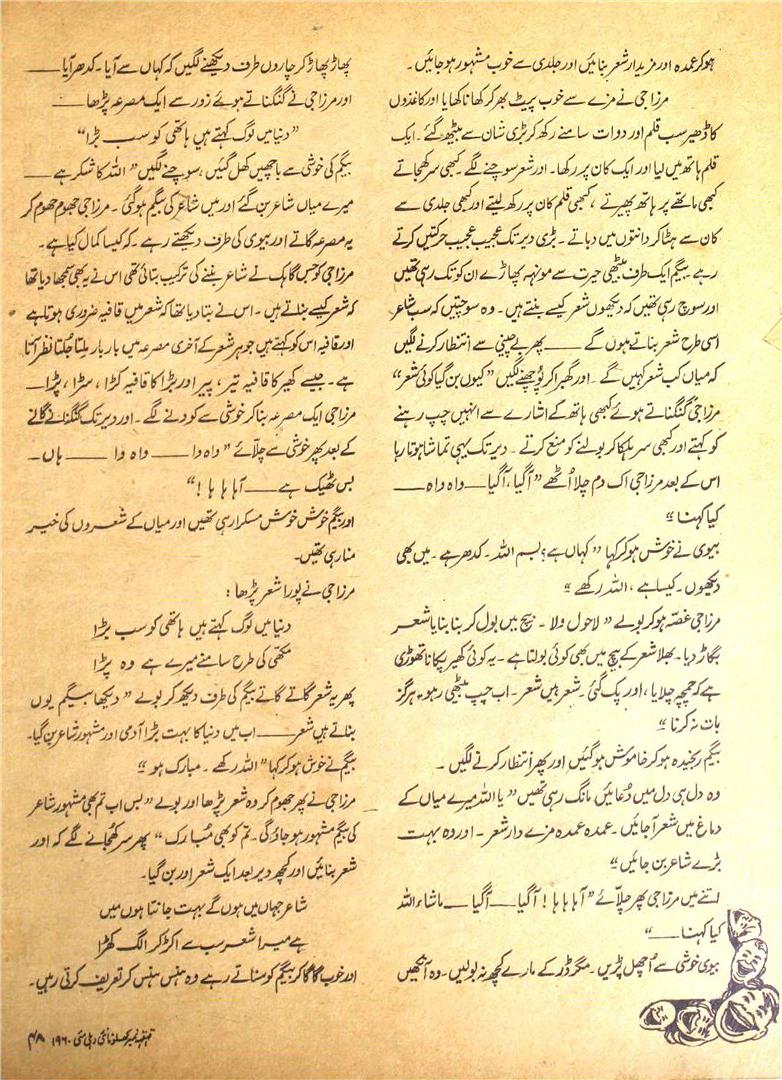 ہوکر عمدہ اور مزیدار شعر بنائیں اور جلدی سے خوب مشہور ہوجائیں۔
مرزا جی نے مزے سے خوب پیٹ بھر کر کھانا کھایا اور کاغذوں
کا ڈھیر سب قلم اور دوات سامنے رکھ کر بڑی شان سے بیٹھ گئے۔ ایک
قلم ہاتھ میں لیا اور ایک کان پر رکھا۔ اور شعر سوچنے لگے۔ کبھی سر کھجاتے
کبھی ماتھے پر ہاتھ پھیرتے، کبھی قلم کان پر رکھ لیتے اور کبھی جلدی سے
کان سے ہٹا کر دانتوں میں دباتے۔ بڑی دیر تک عجیب عجیب حرکتیں کرتے
رہے بیگم ایک طرف بیٹھی حیرت سے مونہہ پھاڑے ان کو تک رہی تھیں
اور سوچ رہی تھیں کہ دیکھوں شعر کیسے بنتے ہیں۔ وہ سوچتیں کہ سب شاعر
اسی طرح شعر بناتے ہوں گے ــــــ پھر بے چینی سے انتظار کرنے لگیں
کہ میاں کب شعر کہیں گے۔ اور گھبرا کر پوچھنے لگیں ”کیوں بن گیا کوئی شعر“
مرزا جی گنگناتے ہوئے کبھی ہاتھ کے اشارے سے انہیں چپ رہنے
کو کہتے اور کبھی سر ہلا کر بولنے کو منع کرتے۔ دیر تک یہی تماشا ہوتا رہا
اس کے بعد مرزا جی اک دم چلا اُٹھے ”آگیا، آگیا ــــ واہ واہ ــــ
کیا کہنا“
بیوی نے خوش ہو کر کہا ”کہاں ہے؟ بسم اللہ۔ کدھر ہے۔ میں بھی
دیکھوں۔ کیسا ہے، اللہ رکھے“
مرزا جی غصّہ ہو کر بولے ”لاحول ولا۔ بیچ میں بول کر بنا بنایا شعر
بگاڑ دیا۔ بھلا شعر کے بیچ میں بھی کوئی بولتا ہے۔ یہ کوئی کھیر پکانا تھوڑی
ہے کہ چمچہ چلایا، اور پک گئی۔ شعر ہیں شعر۔ اب چپ بیٹھی رہو، ہرگز
بات نہ کرنا“
بیگم رنجیدہ ہو کر خاموش ہو گئیں اور پھر انتظار کرنے لگیں۔
وہ دل ہی دل میں دُعائیں مانگ رہی تھیں ”یا اللہ میرے میاں کے
دماغ میں شعر آجائیں۔ عمدہ عمدہ مزے دار شعر۔ اور وہ بہت
بڑے شاعر بن جائیں“
اتنے میں مرزا جی پھر چلّائے ”آہا ہا ہا! آگیا ــــ آگیا ــــ ماشاء اللہ
کیا کہنا ــــ“
بیوی خوشی سے اُچھل پڑیں۔ مگر ڈر کے مارے کچھ نہ بولیں۔ وہ آنکھیں
پھاڑ پھاڑ کر چاروں طرف دیکھنے لگیں کہ کہاں سے آیا۔ کدھر آیا ــــ
اور مرزا جی نے گنگناتے ہوئے زور سے ایک مصرعہ پڑھا ــــ
”دنیا میں لوگ کہتے ہیں ہاتھی کو سب بڑا“
بیگم کی خوشی سے باچھیں کھل گئیں، سوچنے لگیں ”اللہ کا شکر ہے ــــ
میرے میاں شاعر بن گئے اور میں شاعر کی بیگم ہوگئی۔ مرزا جی جھوم جھوم کر
یہ مصرعہ گاتے اور بیوی کی طرف دیکھتے رہے۔ کہ کیسا کمال کیا ہے۔
مرزا جی کو جس گاہک نے شاعر بننے کی ترکیب بتائی تھی اس نے یہ بھی سمجھا دیا تھا
کہ شعر کیسے بناتے ہیں۔ اس نے بتا دیا تھا کہ شعر میں قافیہ ضروری ہوتا ہے
اور قافیہ اس کو کہتے ہیں جو ہر شعر کے آخری مصرعہ میں بار بار ملتا جلتا نظر آتا
ہے۔ جیسے کھیر کا قافیہ تیر، پیر اور بڑا کا قافیہ کڑا، سڑا، پڑا ــــ
مرزا جی ایک مصرعہ بنا کر خوشی سے کودنے لگے۔ اور دیر تک گنگنانے گانے
کے بعد پھر خوشی سے چلّائے ”واہ وا ــــ واہ وا ــــ ہاں۔
بس ٹھیک ہے ــــ آہا ہا ہا!“
اور بیگم خوش خوش مسکرا رہی تھیں اور میاں کے شعروں کی خیر
منا رہی تھیں۔
مرزا جی نے پورا شعر پڑھا:
دنیا میں لوگ کہتے ہیں ہاتھی کو سب بڑا
مکھّی کی طرح سامنے میرے ہے وہ پڑا
پھر یہ شعر گاتے گاتے بیگم کی طرف دیکھ کر بولے ”دیکھا بیگم یوں
بناتے ہیں شعر ــــ اب میں دنیا کا بہت بڑا آدمی اور مشہور شاعر بن گیا۔
بیگم نے خوش ہو کر کہا ”اللہ رکھے۔ مبارک ہو“
مرزا جی نے پھر جھوم کر وہ شعر پڑھا اور بولے ”بس اب تم بھی مشہور شاعر
کی بیگم مشہور ہو جاؤ گی۔ تم کو بھی مُبارک“ پھر سر کھُجانے لگے کہ اور
شعر بنائیں اور کچھ دیر بعد ایک شعر اور بن گیا۔
شاعر جہاں میں ہوں گے بہت جانتا ہوں میں
ہے میرا شعر سب سے اکڑ کر الگ کھڑا
اور خوب گا گا کر بیگم کو سناتے رہے وہ ہنس ہنس کر تعریف کرتی رہیں۔
قہقہہ نمبر کھلونا نئی دہلی مئی ۱۹۶۰